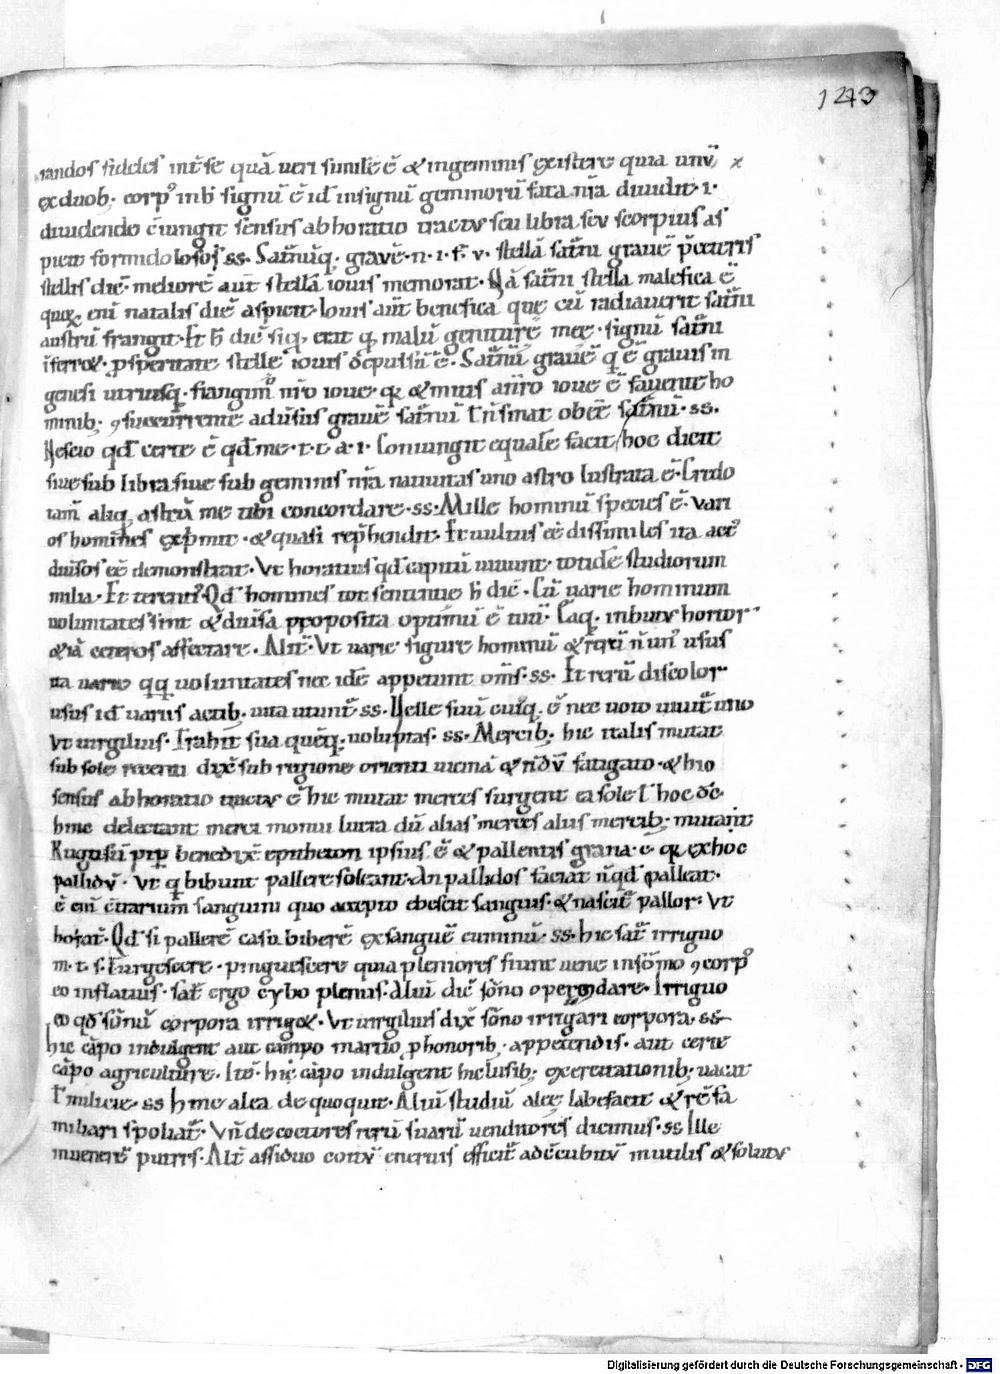 143
randos fideles int̄ se quā ueri simile ē & in geminis existere quia unū
ex duob; corp̄ in b̄ signū ē id insignū geminorū fata nr̄a diuidit .i.
diuidendo c̄iungit sensus ab horatio tractus seu libra seu scorpius as
picit formidolosos. ss. Saturnūq; grauē .n. i. f. v. stellā saturni grauē p̄ ceteris
stellis dic̄. meliorē aut̄ stellā iouis memorat. Nā saturni stella malefica ē
quę eni natalis diē aspicit. Iouis aut̄ benefica que cū radiauerit saturni
austrū frangit. It̄ b̄ dic̄ siq; erat q; malū geniturę meę. signū saturni
ꝓsperitate stellę iouis ē. Saturnū grauē q̄ ē grauis in
genesi utriusq;. frangim̄ nr̄o ioue. & nr̄o ioue ē fauente ho
minib; aduersus grauē saturnū obēē saturnū. ss.
Nescio qđ certe ē qđ me. t. t. a. i. Coniungit equale facit hoc dicit
siue sub libra siue sub geminis nr̄a natiuitas uno astro lustrata ē. Credo
tam̄ aliq; astrū me tibi concordare. ss. Mille hominū species ē. Vari
os homines exp̄mit. & quasi rep̄hendit. Et uultus eē dissimiles ita act̄
diuersos eē demonstrat. Vt horatius qđ capitū uiuunt totidē studiorum
milia. Et terenti' Qđ homines tot sententie b̄ dic̄. Cū uarie hominum
uoluntates sint & diuersa proposita optimū ē tuū. Eaq; inbutus hortor
& iā ceteros affectare. Alit̄. Vt uarie figure hominū & rerū n̄ un' usus
ita uarie qq; uoluntates nec idē appetunt om̄s. ss. Et rerū discolor
usus id uariis actib; uita utunt̄. ss. Velle suū cuiq; ē nec uoto uiuit̄ uno
Vt uirgilius. Trahit sua quēq; uoluptas. ss. Mercib; hic italis mutat
sub sole recenti dix̄ sub regione orienti uicina & fatigato. &
sensus ab horatio tractus ē hic mutat merces surgente a sole hoc
hinc delectant merci moniti lucra dū alias merces aliis mercib; mutant
Rugosū pip; bene dix̄ epitheton ipsius ē & pallentis grana. c. ex hoc
pallidū. Vt q̄ bibunt pallere soleant. An pallidos faciat n̄ qđ palleat.
ē eni c̄trarium sanguini quo accepto ebescit sanguis. & nascit̄ pallor. Vt
horat̄. Qđ si pallerē casu biberē exsanguē cuminū. ss. hic sat̄ irriguo
m. t. s. Turgescere. pinguescere quia pleniores fiunt uene in sōno corp̄
eo inflatius. sat̄ ergo cybo plenus. Alii dic̄ sōno. Irriguo
eo qđ sōnū corpora irriget. Vt uirgilius dix̄ sōno irrigari corpora. ss.
hic cāpo indulgent aut campo martio ꝓ honorib; appetendis. aut certe
cāpo agriculture. Itē. hic cāpo indulgent hic lusib; exercitationib; uacat
militie. ss hinc alea decoquit. Aliū studiū aleę labefacit & rē fa
miliari spoliat̄. Vn̄ decoctores rerū suarū uenditores dicimus. ss Ille
in uenerē putris. Alit̄ assiduo coitu eneruis efficit̄ ad c̄cubitū mutilis & solutus
Digitalisierung gefördert durch die Deutsche Forschungsgemeinschaft - DFG